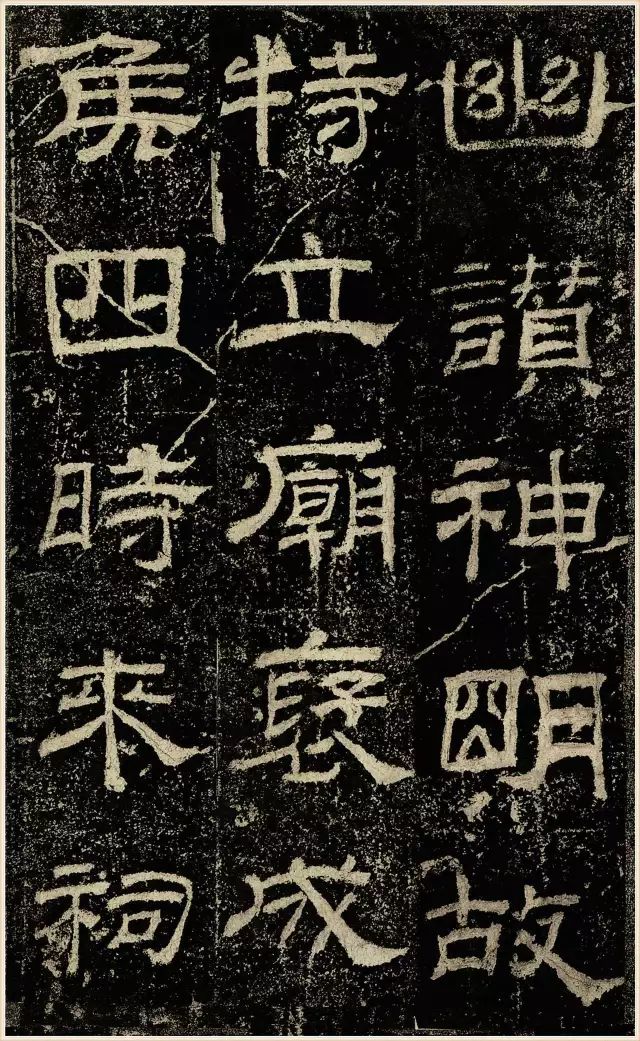 幽讃神明故
特立廟襃成
矦四時來祠